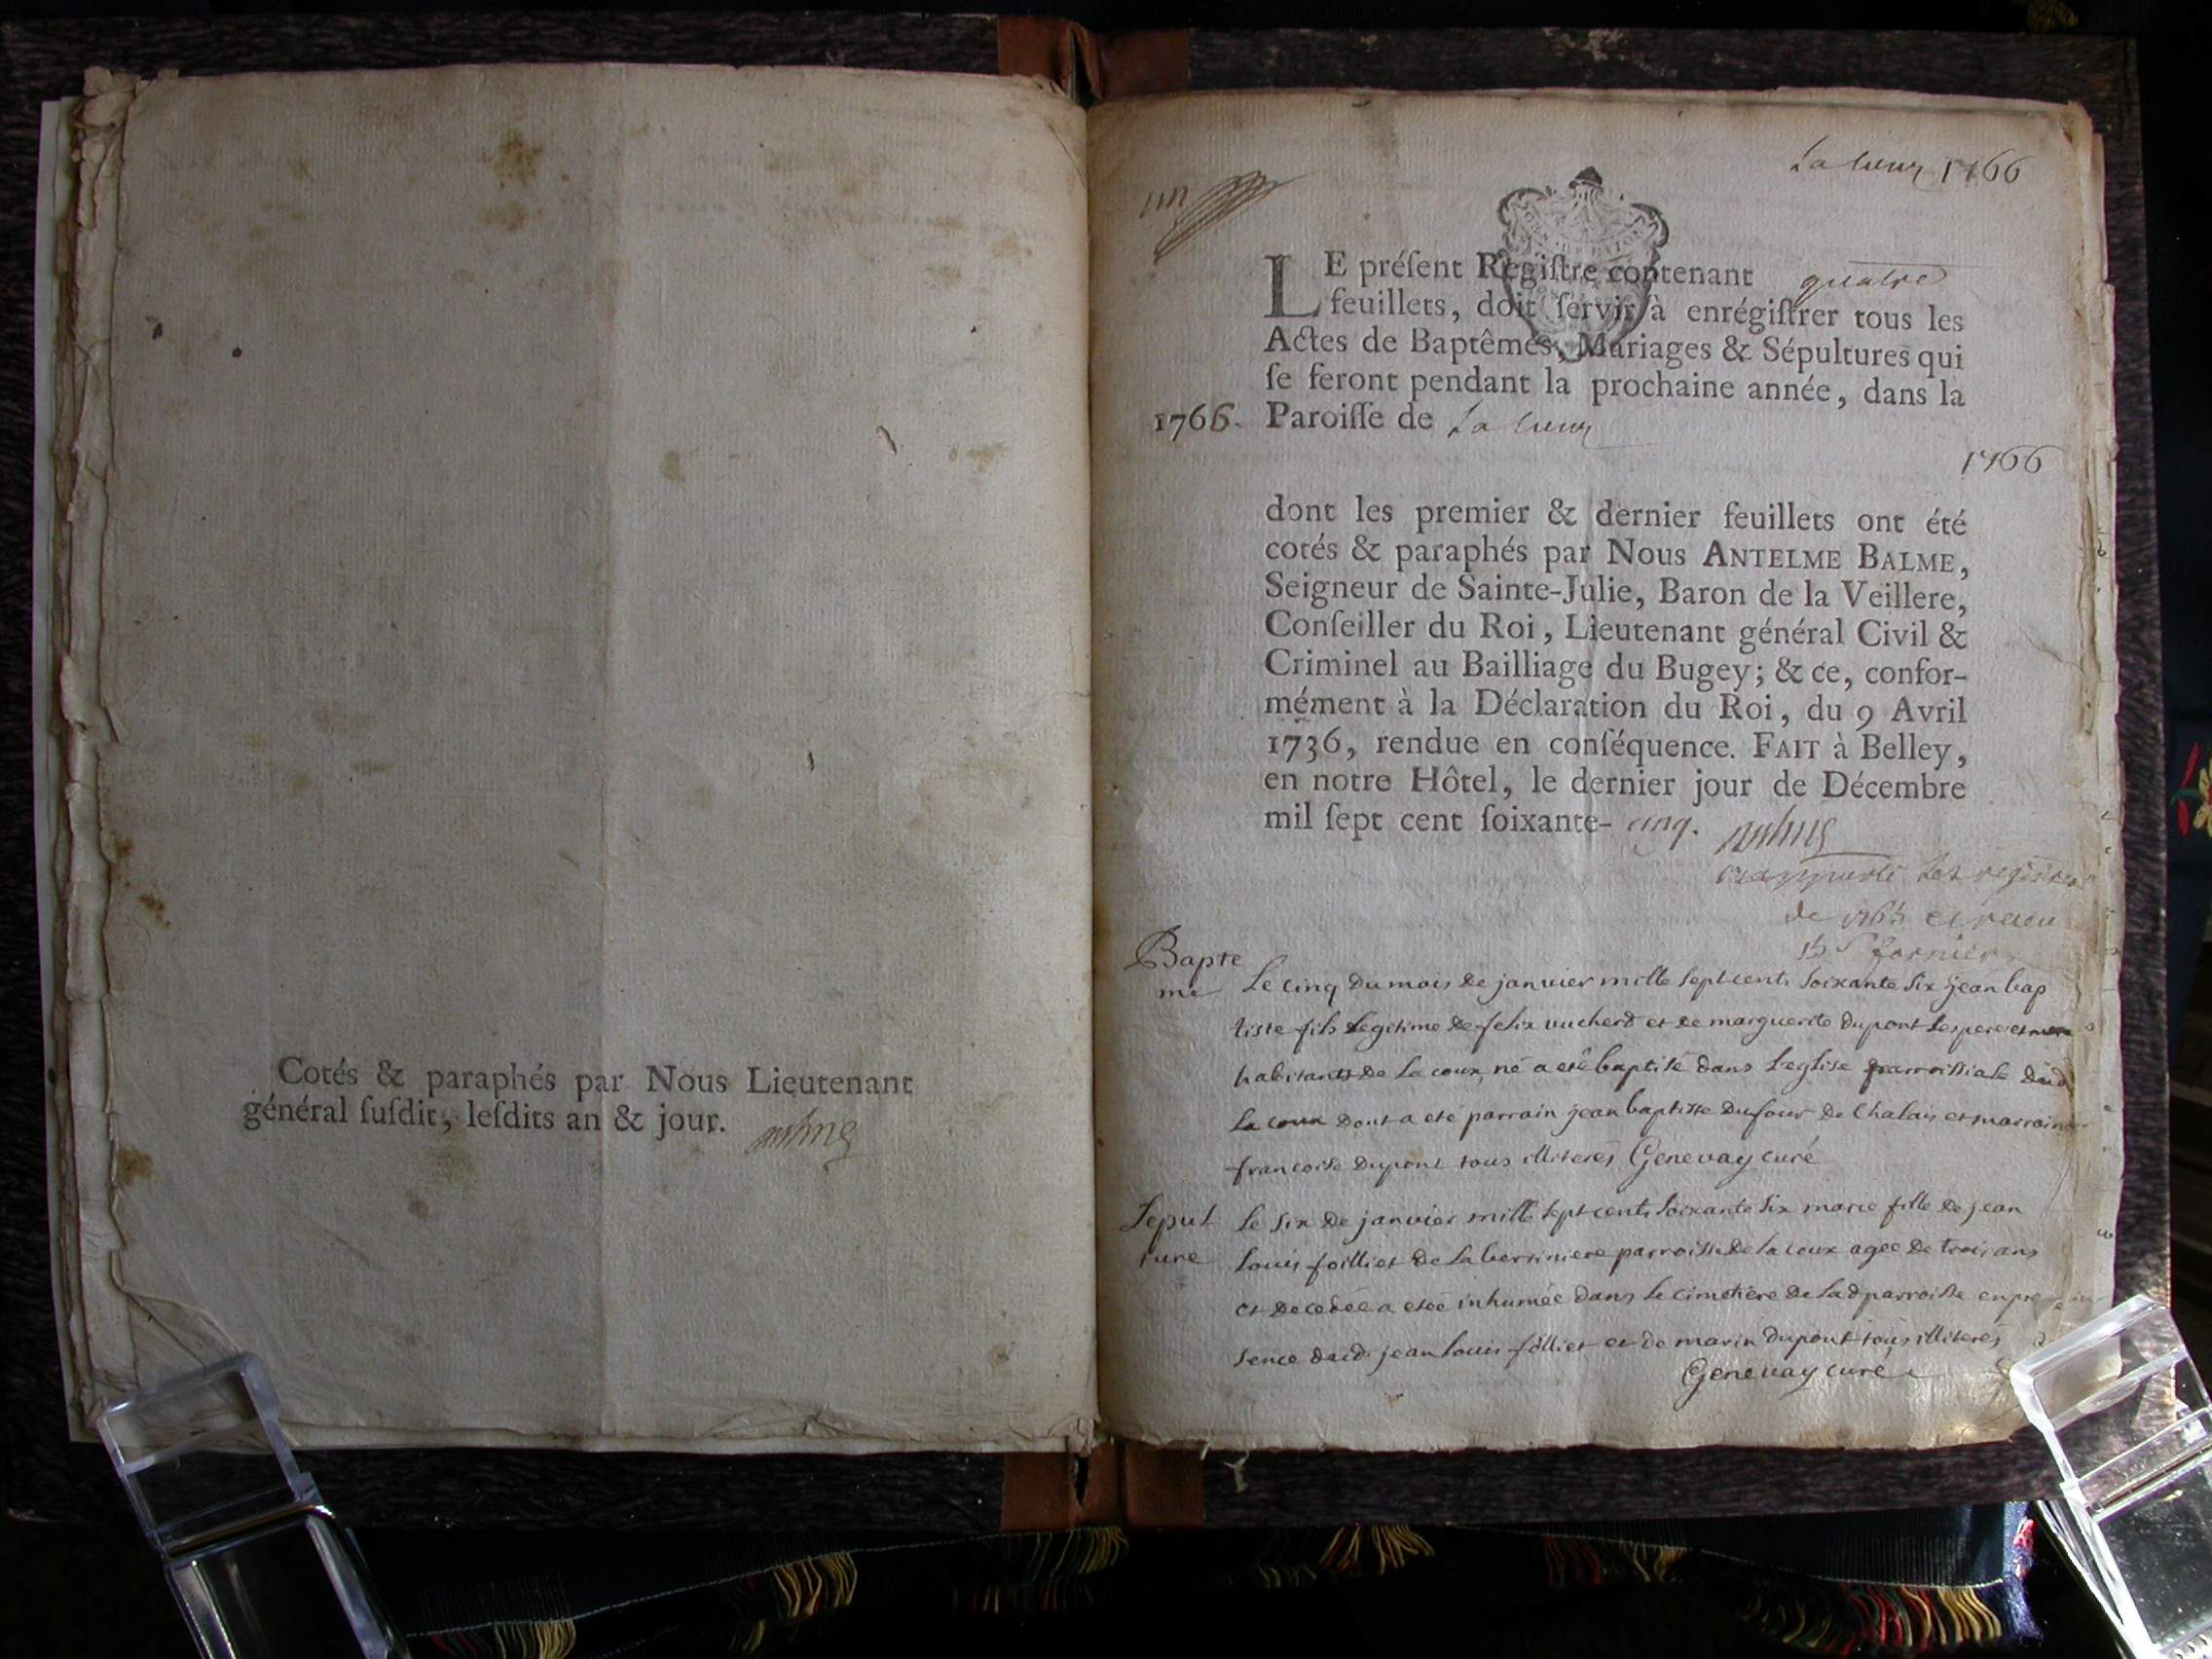 Cotés & paraphés par Nous Lieutenant
général ſuſdit, leſdits an & jour.
La coux 1766
un
LE préſent Regiſtre contenant quatre
feuillets, doit ſervir à enrégiſtrer tous les
Actes de Baptêmes, Mariages & Sépultures qui
ſe feront pendant la prochaine année, dans la
1766. Paroiſſe de La coux
1766
dont les premier & dernier feuillets ont été
cotés & paraphés par Nous ANTELME BALME,
Seigneur de Sainte-Julie, Baron de la Veillere,
Conſeiller du Roi, Lieutenant général Civil &
Criminel au Bailliage du Bugey; & ce, confor-
mément à la Déclaration du Roi, du 9 Avril
1736, rendue en conſéquence. FAIT à Belley,
en notre Hôtel, le dernier jour de Décembre
mil ſept cent ſoixante- cinq.
les registres
de 1765
Bapte
me Le cinq du mois de janvier mille sept cents soixante six jean bap
tiste fils legitime de felix vucherd et de marguerite dupont ses pere et mere
habitants de la coux, né a eté baptisé dans l'eglise parroissiale dud
la coux dont a eté parrain jean baptiste dufour de Chalais et marraine
francoise dupont tous illiterés Genevay curé
Sepul
ture le six de janvier mille sept cents soixante six marie fille de jean
louis foilliet de la bertiniere parroisse de la coux agee de trois ans
et decedée a etée inhumée dans le cimetière de lad parroisse en pre
sence dud. jean louis foilliet et de marin dupont tous illiterés
Genevay curé